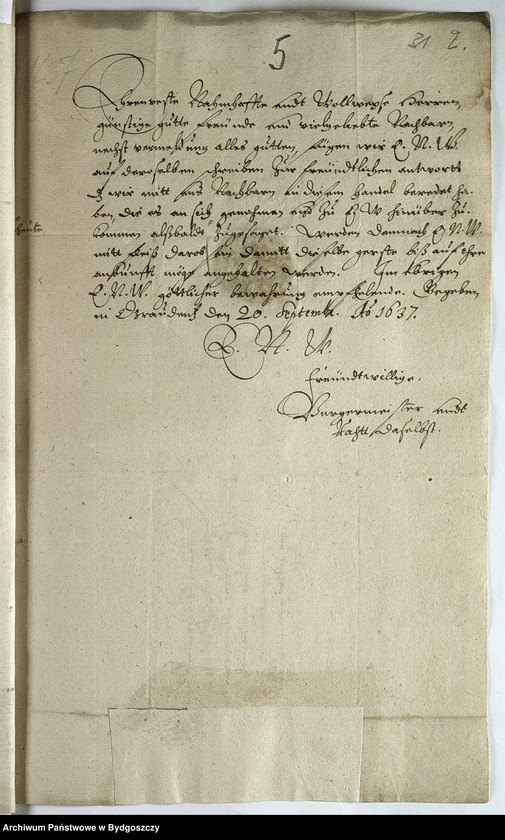 5
31
Ehrenveste Nahmhaffte undt Wollweyse Herren,
günstige gutte Freunde und vielgeliebte Nachbarn,
nechst vermeldung alles gutten, fügen wir E. N. W.
auf deroselben schreiben zur freundtlichen antwortt
wir mitt uns Nachbarn in diesem handel beredet ha-
ben, die es an sich genohmen und zu E W hinüber zu
kommen alßbaldt zugesaget. Werden demnach E. N. W.
mitt fleiß darob sein damitt dieselbe gerste biß auf ihre
ankunfft möge angehalten werden. Im übrigen
E. N. W. göttlicher bewahrung empfehlende. Gegeben
in Graudentz den 20. Septembr. Ao 1637.
E. N. W.
Freundtwillige.
Burgermeister undt
Rahtt daselbst.
Archiwum Państwowe w Bydgoszczy